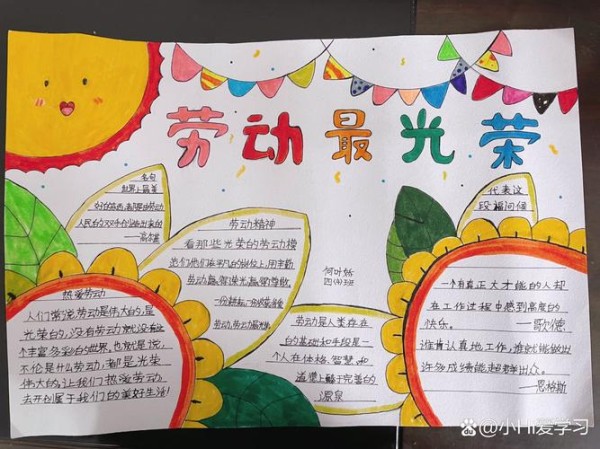 劳动最光荣
名句
世界上最美
好的东西,都是由劳动
人民的双手创造出来的
——高尔基
劳动精神
看那些光荣的劳动模
范们,他们在平凡的岗位上,用辛勤
劳动赢得荣光,赢得尊敬
一份耕耘,一份收获
劳动,劳动最光荣
四(4)班
代表这
段福问候
热爱劳动
人们常说劳动是伟大的,是
光荣的,没有劳动就没有这
个丰富多彩的世界。也就是说,
不伦是什么劳动,都是光荣
伟大的,让我们热爱劳动
去开创属于我们的美好生活!
劳动是人类存在
的基础和手段是一
个人在体格、智慧、和
道德上臻于完善的
源泉
一个有真正大才能的人却
在工作过程中感到高度的
快乐。——歌德
谁肯认真地工作,谁就能做出
许多成绩,能超群出众。
——恩格斯
@小H爱学习